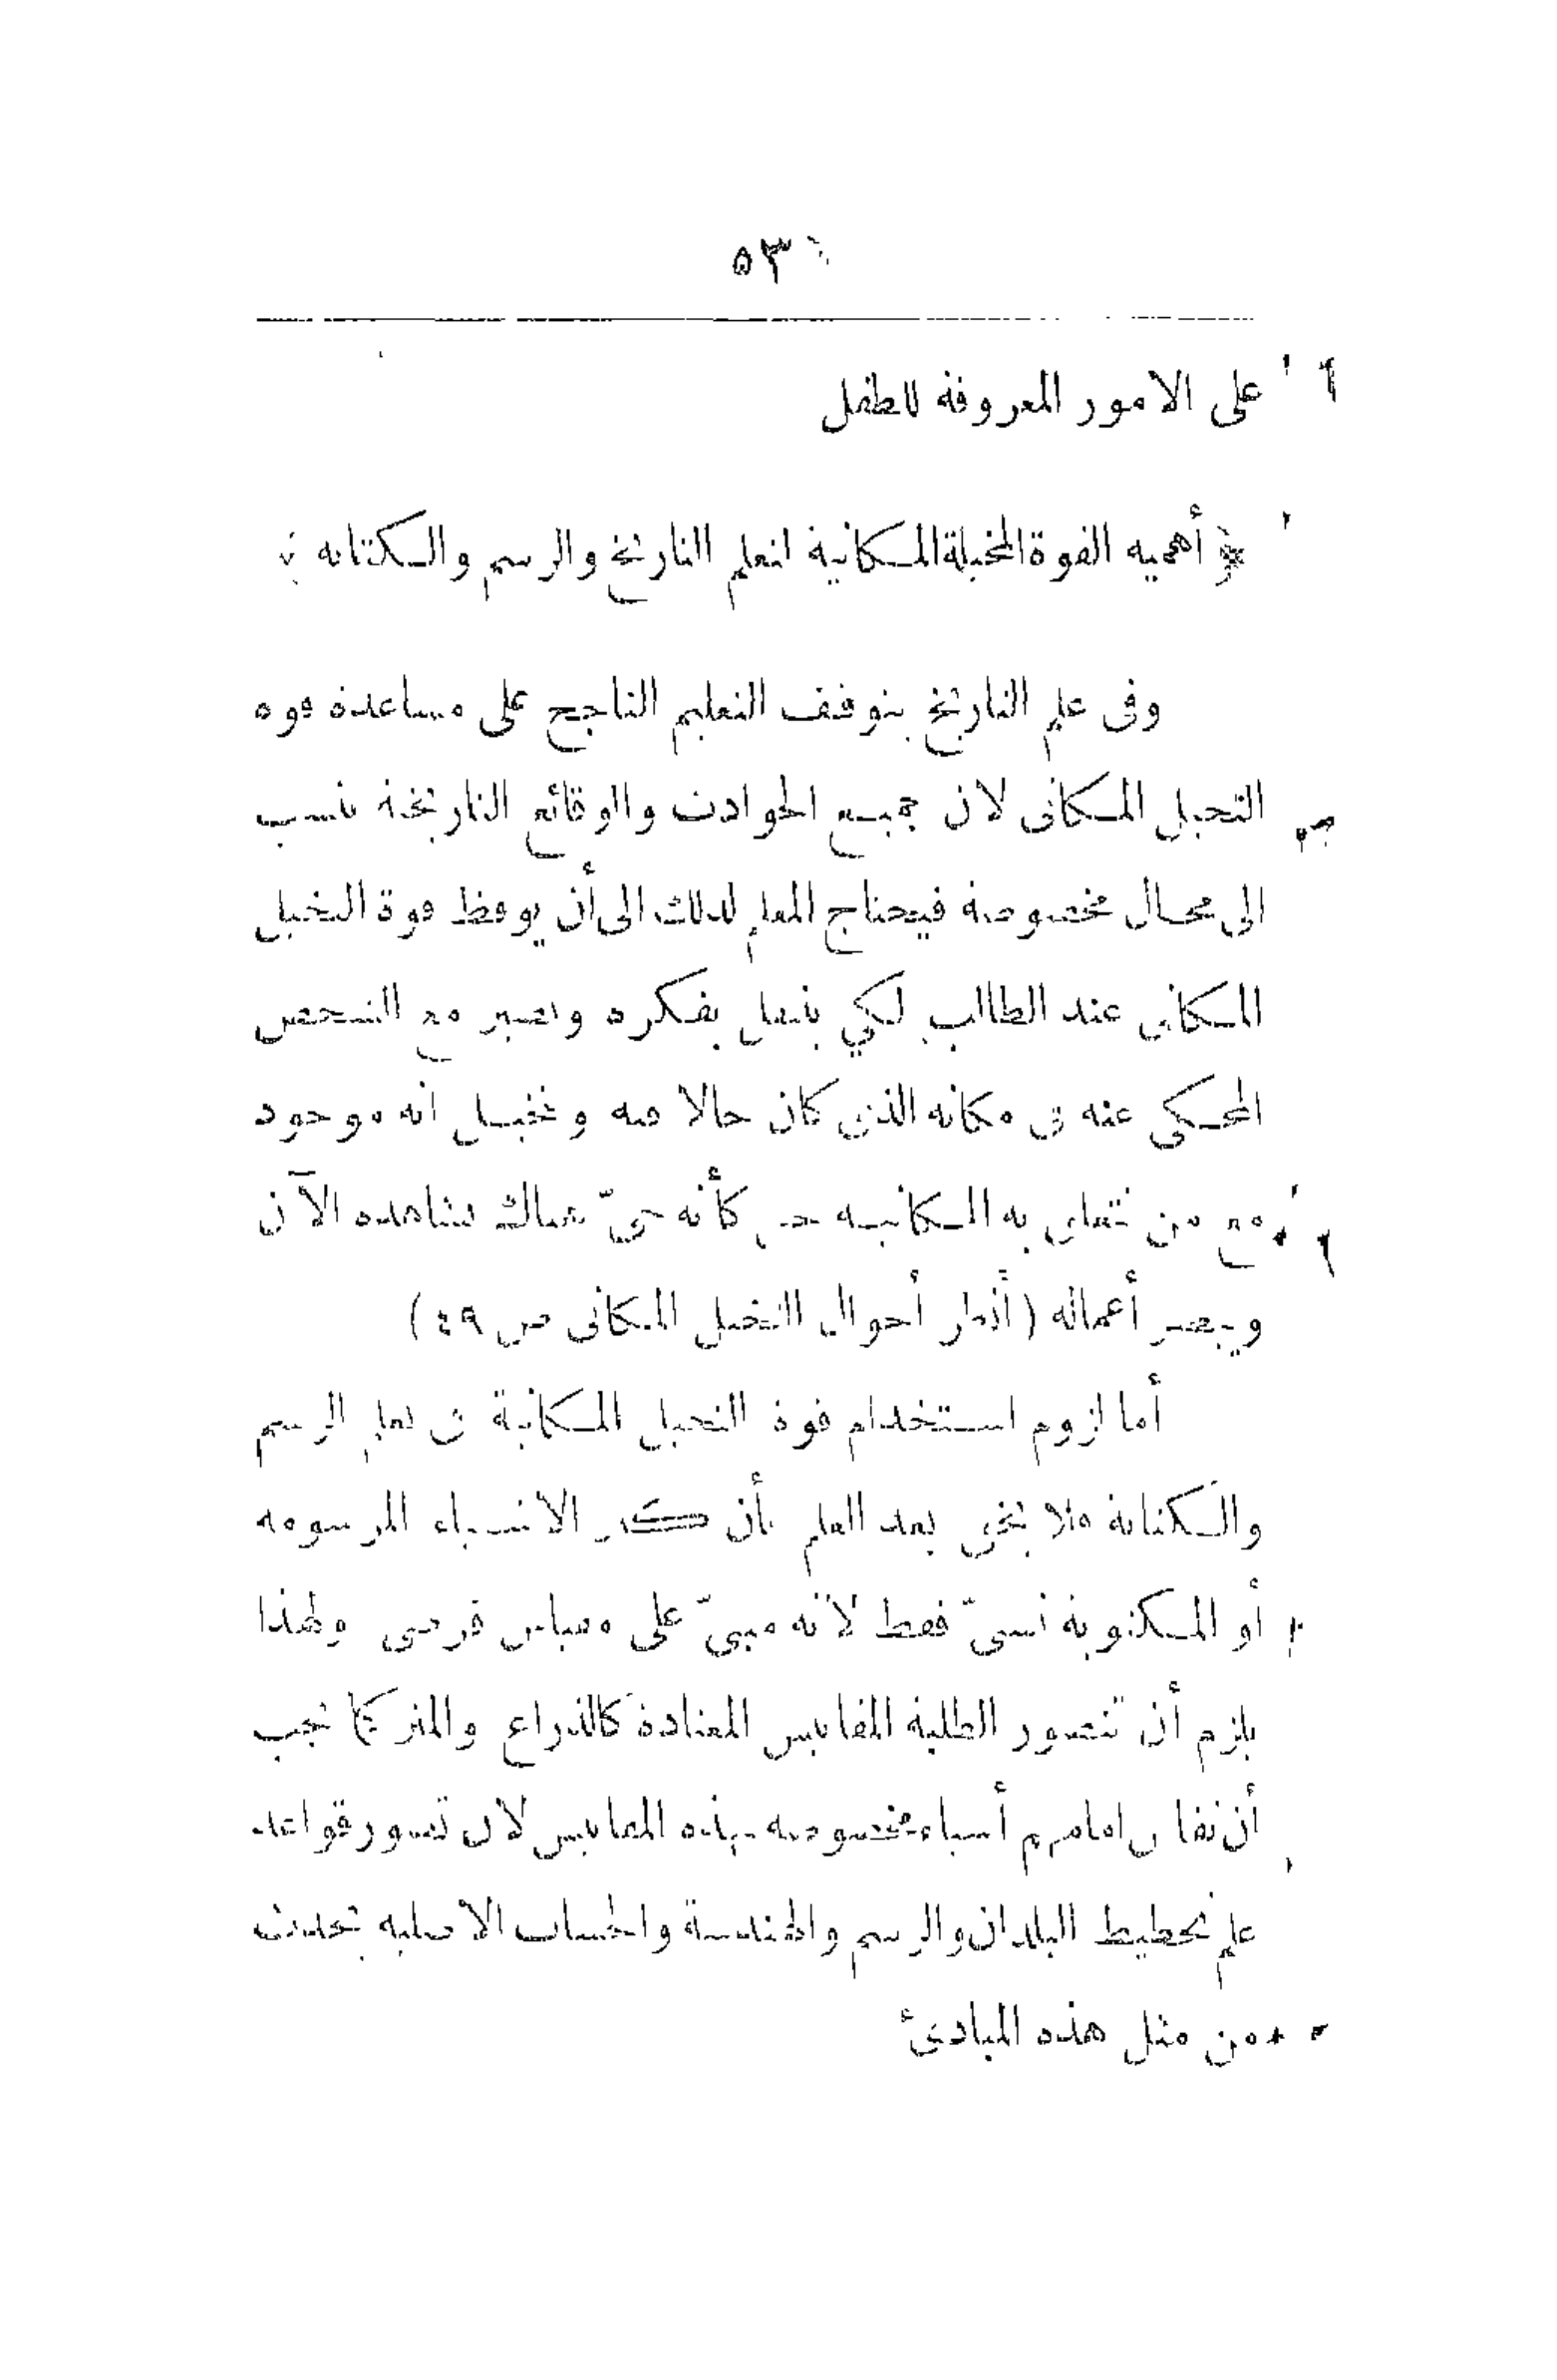 ٥٣
على الامور المعروفة للطفل
﴿ أهمية القوة المخيلة المكانية لتعلم التاريخ والرسم والكتابة ﴾
وفى علم التاريخ يتوقف التعليم الناجح على مساعدة قوة
التخيل المكانى لان جميع الحوادث والوقائع التاريخية تنسب
الى محال مخصوصة فيحتاج المعلم لذلك الى أن يوقظ قوة التخيل
المكانى عند الطالب لكي ينتقل بفكره ويصير مع الشخص
المحكى عنه فى مكانه الذى كان حالا فيه ويتخيل أنه موجود
مع من تتعلق به المكانية حتى كأنه حىّ هناك يشاهده الآن
ويبصر أعماله ( أنظر أحوال التخيل المكانى ص ٤٩ )
أما لزوم استخدام قوة التخيل المكانية فى تعلم الرسم
والكتابة فلا يخفى بعد العلم بأن كبر الاشياء المرسومة
أو المكتوبة نسبىّ فقط لانه مبنىّ على مقياس فرضى ولهذا
يلزم أن تتصور الطلبة المقاييس المعتادة كالذراع والمتر كما يجب
أن تقاس امامهم أشياء مخصوصة بهذه المقاييس لان تصور قواعد
علم تخطيط البلدان والرسم والهندسة والحساب الاصلية تحدث
من مثل هذه المبادئ